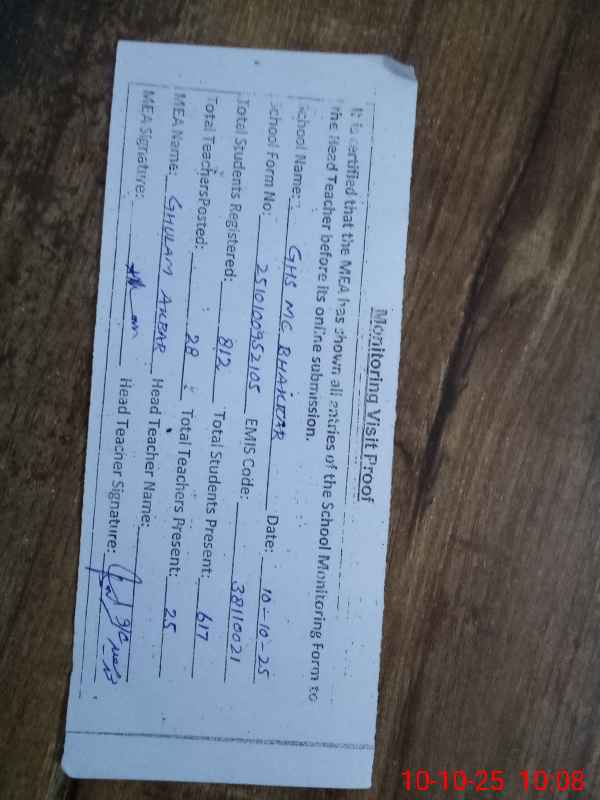 Monitoring Visit Proof
It is certified that the MEA has shown all entries of the School Monitoring Form to
the Head Teacher before its online submission.
School Name: GHS MC BHAKKAR Date: 10-10-25
School Form No: 2510100952105 EMIS Code: 38110021
Total Students Registered: 812 Total Students Present: 617
Total TeachersPosted: 28 Total Teachers Present: 25
MEA Name: GHULAM AKBAR Head Teacher Name:
MEA Signature: Head Teacher Signature:
10-10-25 10:08